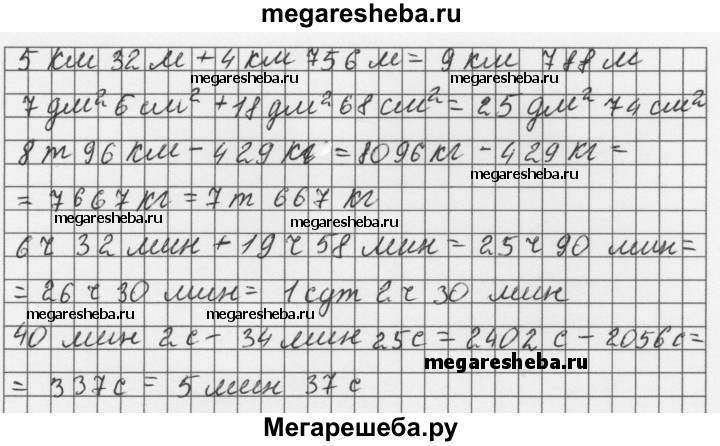 megaresheba.ru
5 км 32 м + 4 км 756 м = 9 км 788 м
megaresheba.ru megaresheba.ru
7 дм² 6 см² + 18 дм² 68 см² = 25 дм² 74 см²
8 т 96 км - 429 кг = 8096 кг - 429 кг =
megaresheba.ru
= 7667 кг = 7 т 667 кг
megaresheba.ru megaresheba.ru
6 ч 32 мин + 19 ч 58 мин = 25 ч 90 мин =
= 26 ч 30 мин = 1 сут 2 ч 30 мин
megaresheba.ru megaresheba.ru
40 мин 2 с - 34 мин 25 с = 2402 с - 2056 с =
megaresheba.ru
= 337 с = 5 мин 37 с
Мегарешеба.ру